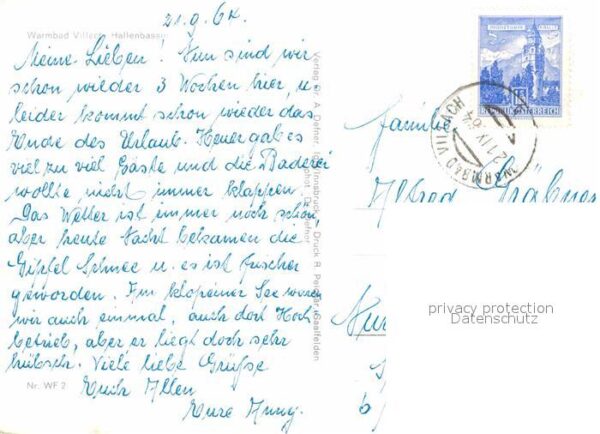 21.9.64.
Warmbad Villach, Hallenbassin
Meine Lieben! Nun sind wir
schon wieder 3 Wochen hier, u
leider kommt schon wieder das
Ende des Urlaub. Heuer gab es
viel zu viel Gäste und die Baderei
wollte nicht immer klappen.
Das Wetter ist immer noch schön,
aber heute Nacht bekamen die
Gipfel Schnee u. es ist frischer
geworden. Am Klopeiner See waren
wir auch einmal, auch dort Hoch
betrieb, aber er liegt doch sehr
hübsch. Viele liebe Grüße
Euch Allen
Eure Anny.
Nr. WF 2
Verlag Dr. A. Defner, Innsbruck - Druck R. Saalfelden
REPUBLIK ÖSTERREICH
WARMBAD VILLACH
21.IX.64
Familie
privacy protection
Datenschutz